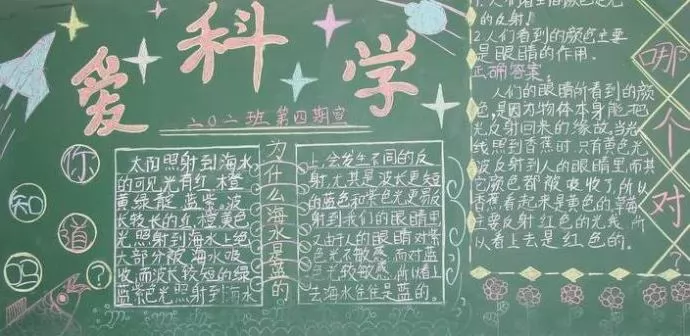 爱科学
二〇二班第四期宣
你知道吗?
为什么海水是蓝的
太阳照射到海水
的可见光有红橙
黄绿靛蓝紫。波
长较长的红澄黄色
光照射到海水上绝
大部分被海水吸
收,而波长较短的绿
蓝紫色光照射到海水
上,会发生不同的反
射,尤其是波长更短
的蓝色和紫色光更易反
射到我们的眼睛里
又由于人的眼睛对紫
色光不敏感,而对蓝
色光较敏感,所以看上
去海水往往是蓝的。
1.人们看到的颜色是光
的反射!
2.人们看到的颜色主要
是眼睛的作用。
正确答案:
人们的眼睛所看到的颜
色,是因为物体本身能把
光反射回来的缘故,当光
线照到香蕉时,只有黄色光
波反射到人的眼睛里,而其
它颜色都被吸收了,所以
香蕉看起来是黄色的,草莓
主要反射红色的光线,所
以看上去是红色的。
哪个对